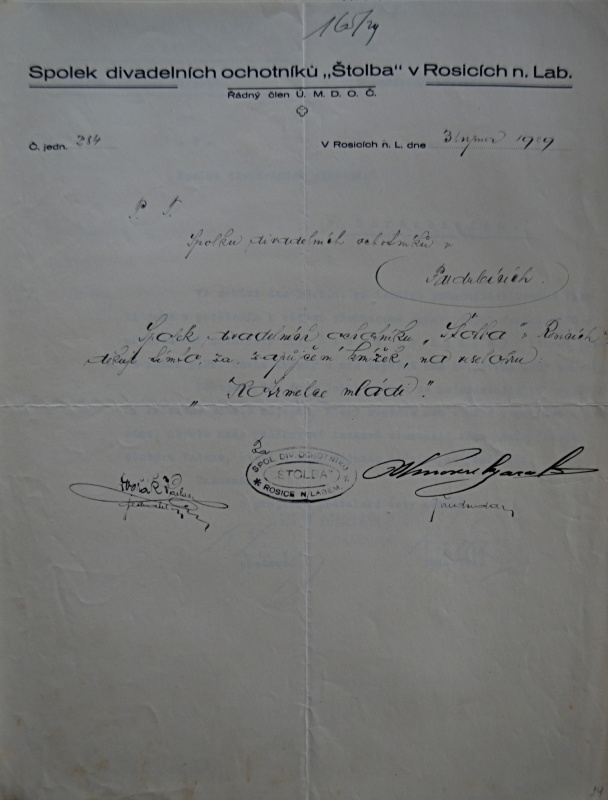 16/29
Spolek divadelních ochotníků „Štolba“ v Rosicích n. Lab.
Řádný člen Ú. M. D. O. Č.
Č. jedn. 284
V Rosicích n. L. dne 3. srpna 1929
P. T.
Spolku divadelních ochotníků v
Pardubicích.
Spolek divadelních ochotníků „Štolba“ v Rosicích
děkuje tímto, za zapůjčení knížek, na veselohru:
„Rozmelae mládí“.
Za
SPOL. DIV. OCHOTNÍKŮ
„ŠTOLBA“
ROSICE N. LABEM.
jednatel
předseda